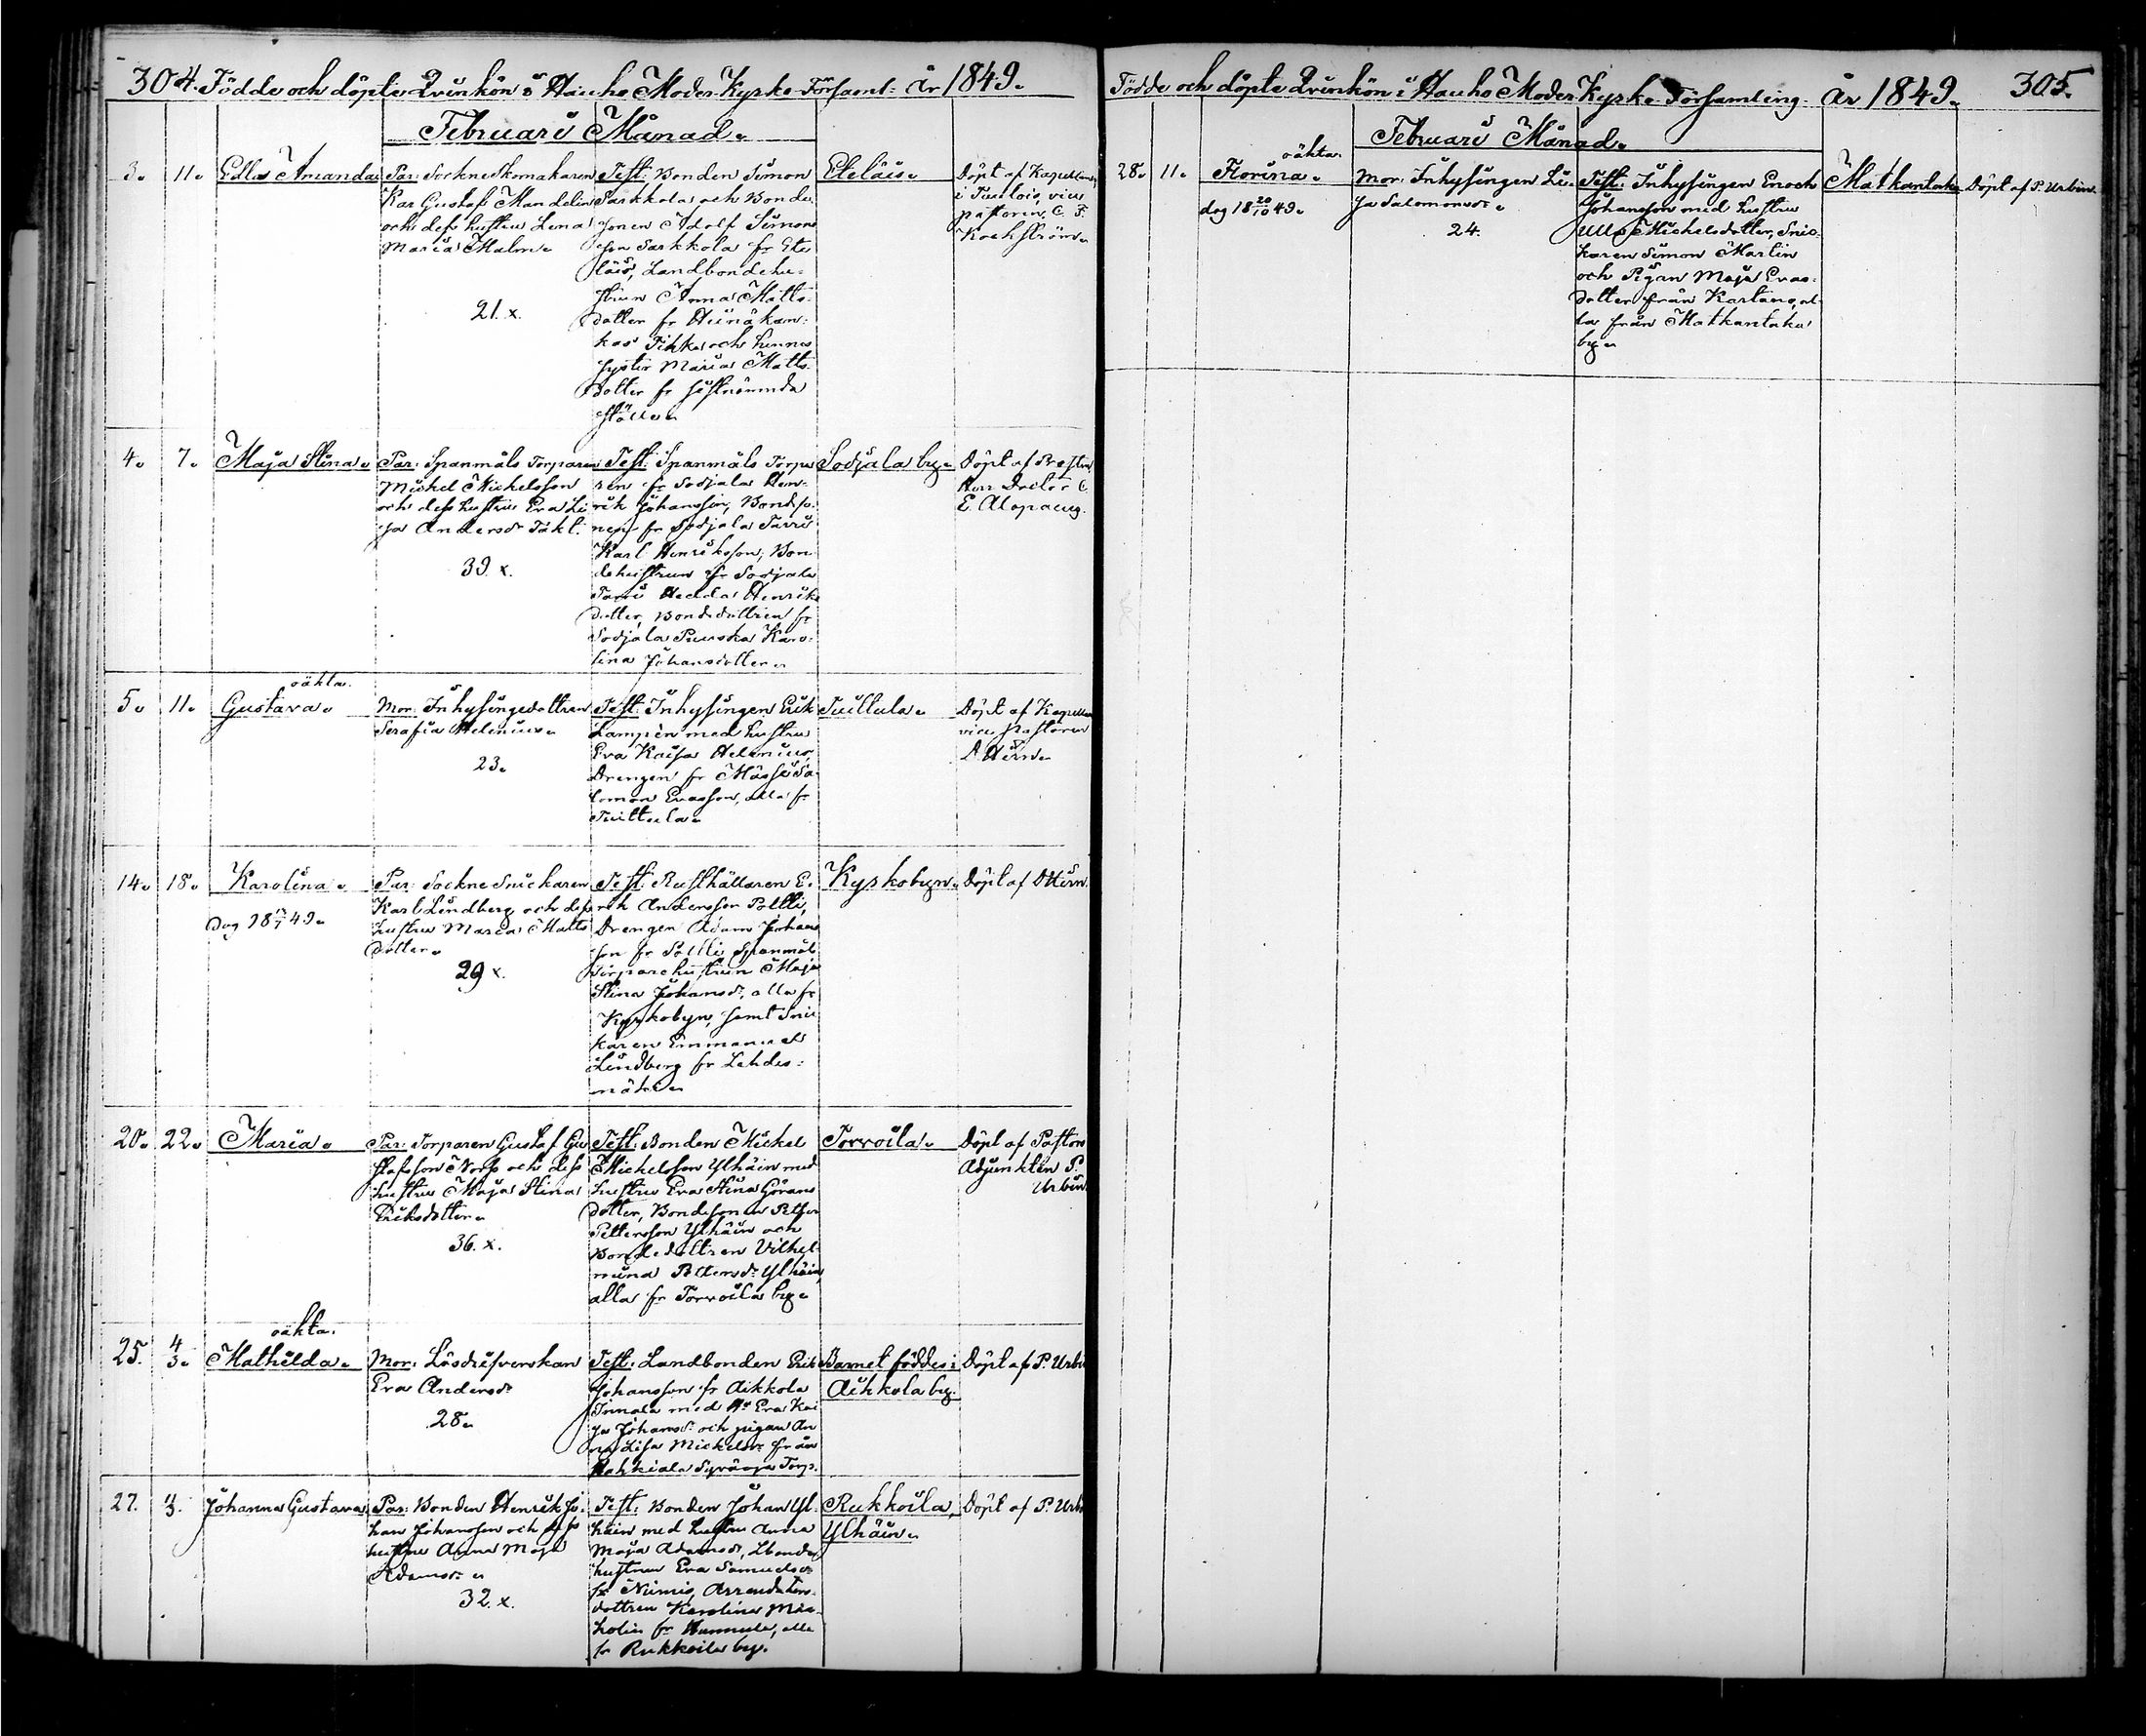 304. Födde och döpte Qvinkön i Hauho Moder-Kyrko-Församl: År 1849.
Februari Månad.
3. 11. Edla Amanda
Par: Sockne Skomakaren
Kar Gustaf Mandelin
och dess hustru Lena
Maria Malm.
21. x.
Test: Bonden Simon
Sarkkola och Bonde
sonen Adolf Simons
son Sarkkola fr Ete
läis, Landbondehu=
strun Anna Matts
dotter fr Hünäkan=
kas och hennes
syster Maria Matts
dotter fr sistnämnda
ställe.
Eteläis.
Döpt af Kapellan
i Tuulois, vice
pastorn C. F.
Kockström.
4. 7. Maja Stina.
Par: Spanmåls Torparen
Mickel Mickelsson
och dess hustru Eva Li
sa Andersdr Täkt.
39. x.
Test: Spanmåls Torpa
ren fr Sodjala Hen=
rik Johansson, Bondso
nen fr Sodjala Tarri
Karl Henriksson, Bon
dehustrun fr Sodjala
Tarri Hedda Henriks
dotter, Bondedottren fr
Sodjala Karo=
lina Johansdotter.
Sodjala by.
Döpt af Prosten
Herr Doctor C.
E. Alopaeus.
5. 11. oäkta.
Gustava.
Mor: Inhysingedottren
Serafia Helenius.
23.
Test: Inhysingen Erik
Lampen med hustru
Eva Kaisa Helenius,
Drengen fr Mässi Sa
lomon Evasson, alla fr
Tuittula.
Tuittula.
Döpt af Kapellan
vice pastorn
D. Hirn.
14. 18. Karolina.
Dog 18 49.
Par: Sockne Snickaren
Karl Lindberg och dess
hustru Maria Matts
dotter.
29 x.
Test: Rusthållaren E.
rik Andersson Pottli,
Drengen Adam Johans
son fr Pottli, Spanmåls
Torparehustrun Maja
Stina Johansdr, alla fr
Kyrkobyn, samt Snic
karen Emmanuel
Lindberg fr Lehdes=
mäki.
Kyrkobyn.
Döpt af D Hirn.
20. 22. Maria.
Par: Torparen Gustaf Gu
stafsson Nors och dess
hustru Maja Stina
Eriksdotter.
36. x.
Test: Bonden Mickel
Mickelsson Ylhäin med
hustru Eva Stina Görans
dotter, Bondsonen Petter
Pettersson Ylhäin och
Bondedottren Vilhel
mina Pettersdr Ylhäin,
alla fr Torvoila by.
Torvoila.
Döpt af Pastors
Adjunkten P.
Urbin.
25. 4/3. oäkta.
Mathilda.
Mor: Lösdrifverskan
Eva Andersdr
28.
Test: Landbonden Erik
Johansson fr Aikkola
Innala med Hu Eva Kai
sa Johansdr och pigan An
na Lisa Mickelsdr från
Hahkiala Torp.
Barnet föddes i
Aihkola by.
Döpt af P. Urbi
27. 4/3. Johanna Gustava.
Par: Bonden Henrik Jo
han Johansson och dess
hustru Anna Maja
Adamsdr.
32. x.
Test: Bonden Johan Yl
häin med hustru Anna
Maja Adamsdr, Lbonde
hustrun Eva Samuelsdr
fr Nimis, Arrendators
dottren Karolina
fr Hummula, alla
fr Rukkoila by.
Rukkoila,
Ylhäin.
Döpt af P. Urbi
Födde och döpte Qvinkön i Hauho Moder Kyrko Församling. År 1849. 305.
Februari Månad.
28. 11. oäkta.
Florina.
dog 18 20/10 49.
Mor: Inhysingen Li=
sa Salomonsdr.
24.
Test: Inhysingen Enoch
Johansson med hustru
Ulla Michelsdotter, Snic=
karen Simon Marlin
och Pigan Maja Evas=
dotter från Karlano, al
la från Matkantaka
by.
Matkantaka
Döpt af P. Urbin.